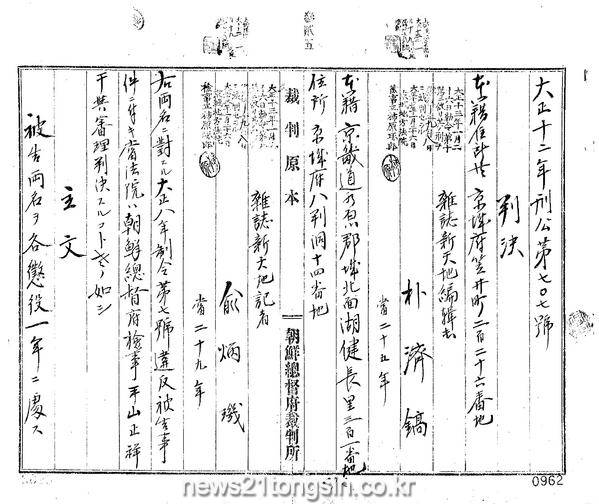 大正十二年刑公第七〇七號
判決
本籍住所共 京城府笠井町二百二十六番地
雜誌新天地編輯者
朴濟鎬
當二十五年
本籍 京畿道 郡城北面湖健長里三百一番地
住所 京城府八判洞十四番地
裁判原本
朝鮮總督府裁判所
雜誌新天地記者
兪炳璣
當二十九年
右両名ニ對スル大正八年制令第七號違反被告事
件ニ付キ當法院ハ朝鮮總督府檢事平山正祥
干與審理判決スルコト左ノ如シ
主文
被告両名ヲ各懲役一年ニ處ス
0962
news21tongsin.co.kr